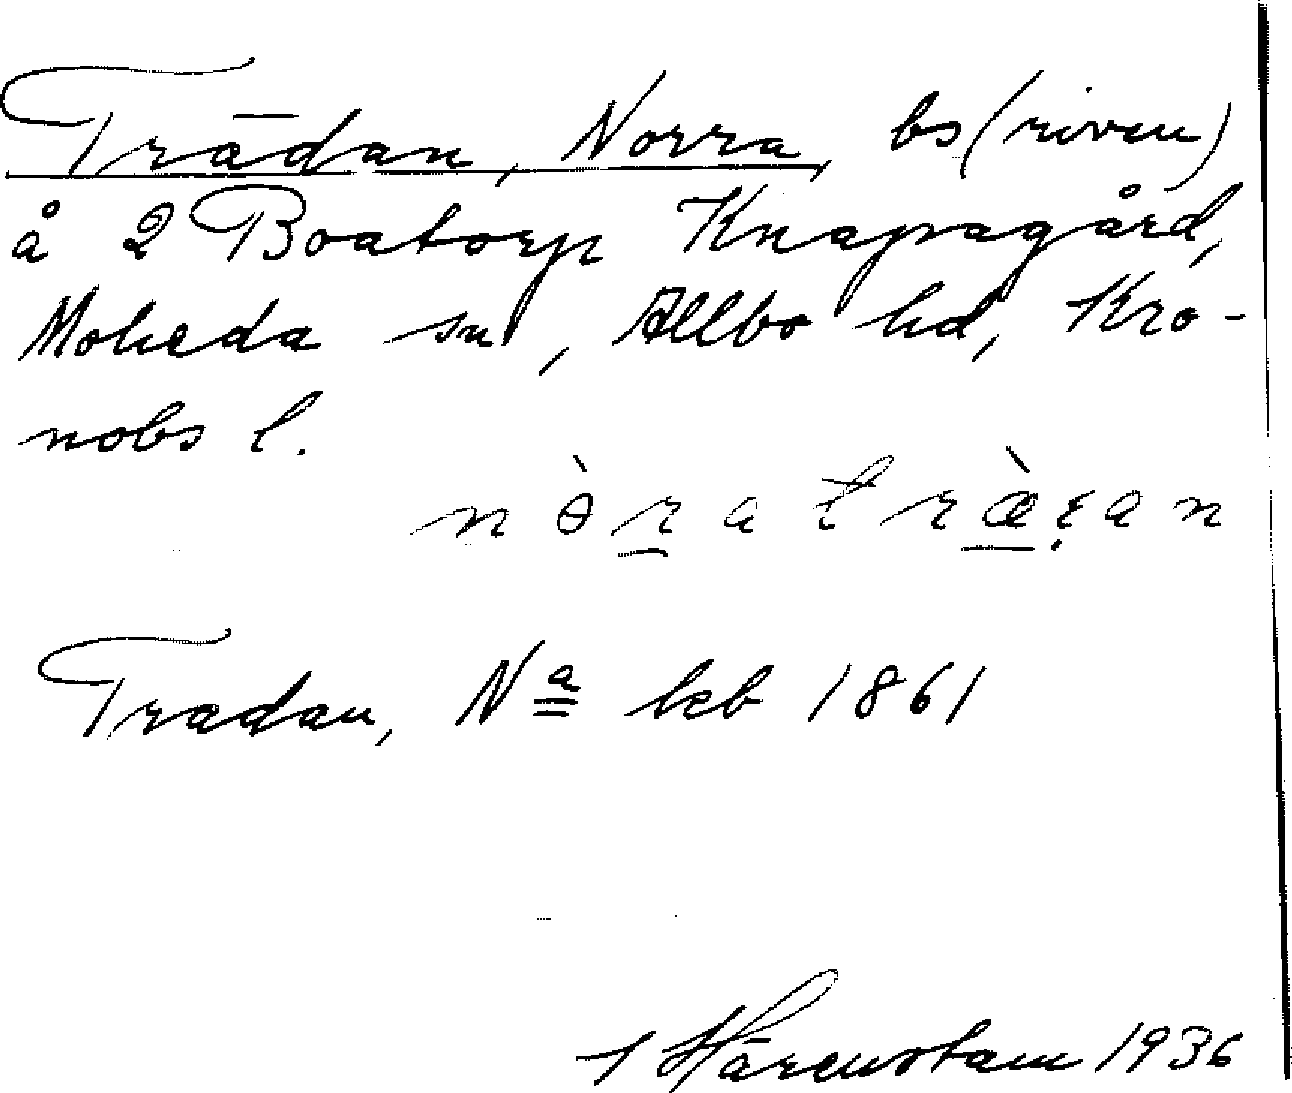 Trädan, Norra, bs (riven)
å 2 Boatorp Knapagård,
Moheda sn, Allbo hd, Kro-
nobs l.
nòratræ̀ran
Tradan, Nª kb 1861
Härenstam 1936